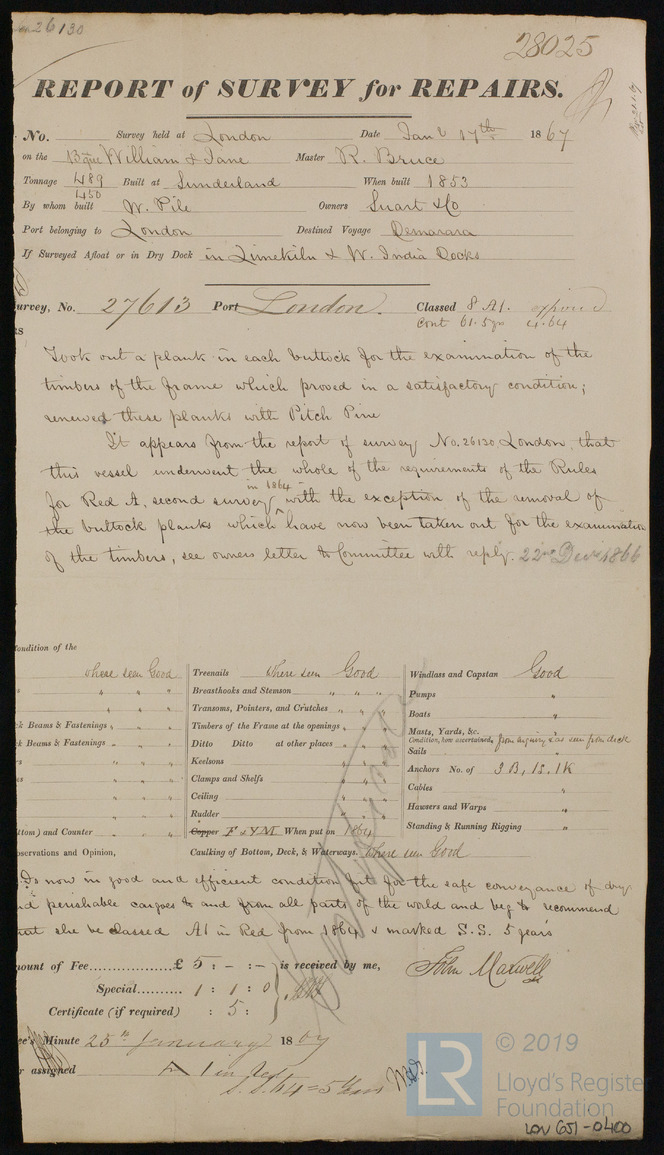 26130
28025
REPORT of SURVEY for REPAIRS.
No. Survey held at London Date Jany 17th 1867
on the Bque William & Jane Master R. Bruce
Tonnage 489 Built at Sunderland When built 1853
450
By whom built W. Pile Owners Luart & Co
Port belonging to London Destined Voyage Demarara
If Surveyed Afloat or in Dry Dock in Limekiln & W. India Docks
urvey, No. 27613 Port London. Classed 8 A1. expired
Cont 61. 5 yrs 4.64
Took out a plank in each buttock for the examination of the
timbers of the frame which proved in a satisfactory condition;
renewed these planks with Pitch Pine
It appears from the report of survey No. 26130 London, that
this vessel underwent the whole of the requirements of the Rules
in 1864
for Red A, second survey with the exception of the removal of
the buttock planks which have now been taken out for the examination
of the timbers, see owners letter to Committee with reply. 22nd Decr 1866
ondition of the
where seen Good Treenails Where seen Good Windlass and Capstan Good
s " " " Breasthooks and Stemson " " " Pumps "
" " " Transoms, Pointers, and Crutches " " " Boats "
ck Beams & Fastenings " " " Timbers of the Frame at the openings " " " Masts, Yards, &c. "
Condition, how ascertained from inquiry & as seen from deck
k Beams & Fastenings " " " Ditto Ditto at other places " " " Sails "
rs " " " Keelsons " " " Anchors No. of 3B, 1S, 1K
" " " Clamps and Shelfs " " " Cables "
" " " Ceiling " " " Hawsers and Warps "
" " " Rudder " " " Standing & Running Rigging "
ttom) and Counter " " " Copper F & YM When put on 1864
bservations and Opinion, Caulking of Bottom, Deck, & Waterways. Where seen Good
Is now in good and efficient condition fit for the safe conveyance of dry
nd perishable cargoes to and from all parts of the world and beg to recommend
that she be classed A1 in Red from 1864 & marked S.S. 5 years
mount of Fee £ 5 : - : - is received by me, John Maxwell
Special 1 : 1 : 0
Certificate (if required) : 5 :
ee's Minute 25th January 1867
r assigned A 1 in Red
S.S. 64 = 5 Years
LR © 2019
Lloyd's Register
Foundation
LON 651-0400